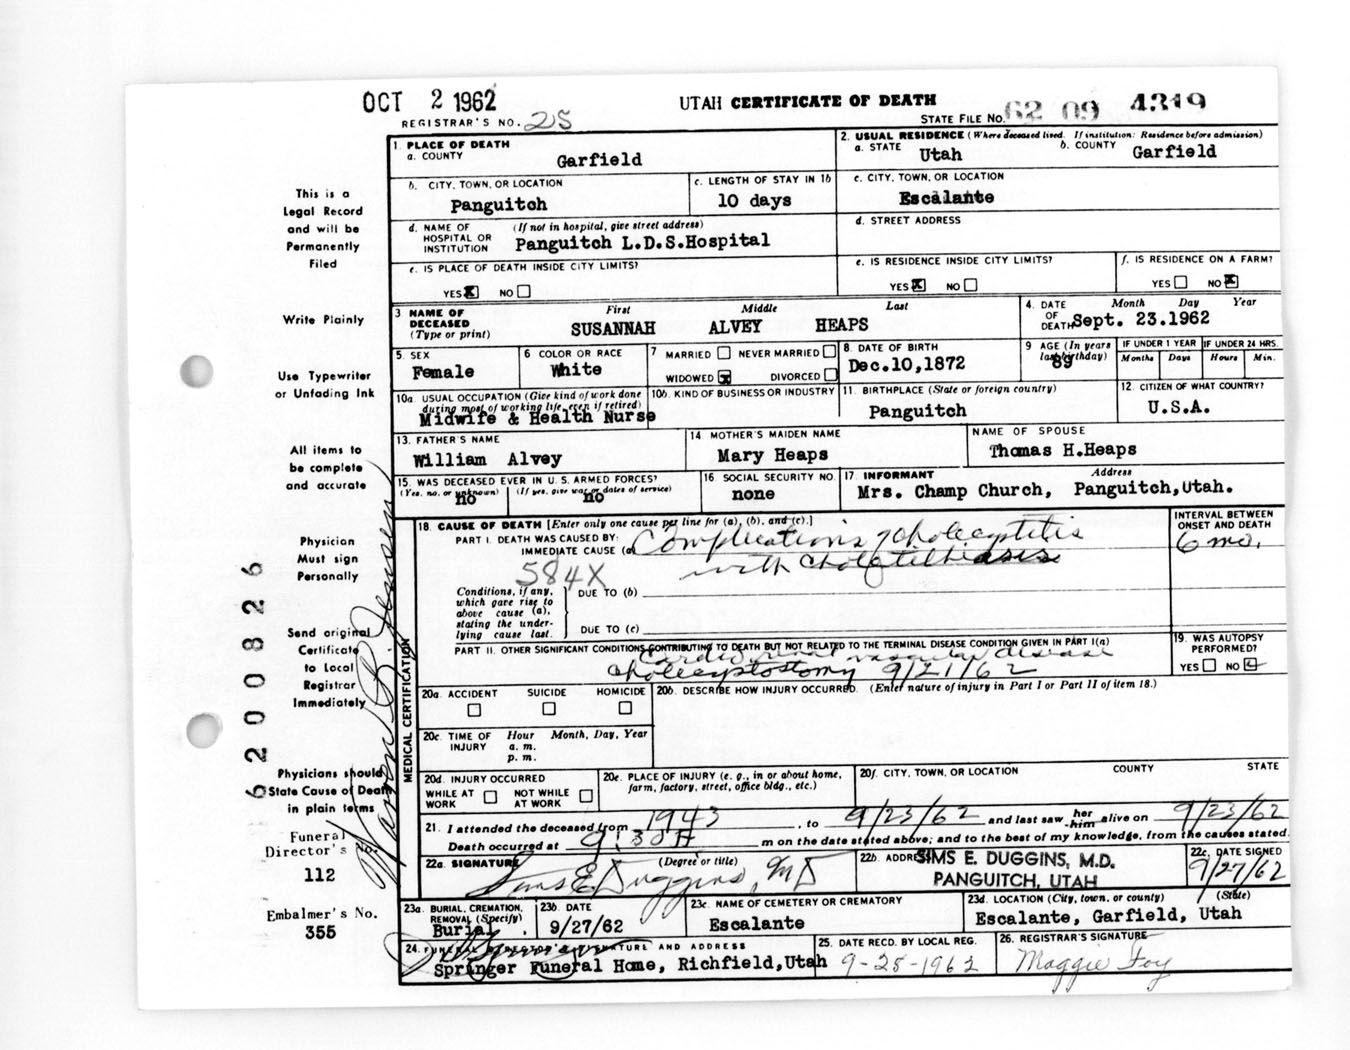 OCT 2 1962
UTAH CERTIFICATE OF DEATH
REGISTRAR'S NO. 25
STATE FILE NO. 62 09 4319
This is a
Legal Record
and will be
Permanently
Filed
Write Plainly
Use Typewriter
or Unfading Ink
All items to
be complete
and accurate
Physician
Must sign
Personally
Send original
Certificate
to Local
Registrar
Immediately
Physicians should
State Cause of Death
in plain terms
Funeral
Director's No.
112
Embalmer's No.
355
62000826
1. PLACE OF DEATH
a. COUNTY Garfield
2. USUAL RESIDENCE (Where deceased lived. If institution: Residence before admission)
a. STATE Utah b. COUNTY Garfield
b. CITY, TOWN, OR LOCATION Panguitch
c. LENGTH OF STAY IN 1b 10 days
c. CITY, TOWN, OR LOCATION Escalante
d. NAME OF HOSPITAL OR INSTITUTION (If not in hospital, give street address) Panguitch L.D.S.Hospital
d. STREET ADDRESS
e. IS PLACE OF DEATH INSIDE CITY LIMITS?
YES X NO
e. IS RESIDENCE INSIDE CITY LIMITS?
YES X NO
f. IS RESIDENCE ON A FARM?
YES NO X
3 NAME OF DECEASED (Type or print) First Middle Last
SUSANNAH ALVEY HEAPS
4. DATE OF DEATH Month Day Year
Sept. 23.1962
5. SEX Female
6. COLOR OR RACE White
7 MARRIED NEVER MARRIED
WIDOWED X DIVORCED
8. DATE OF BIRTH Dec.10,1872
9 AGE (In years last birthday) 89
IF UNDER 1 YEAR Months Days
IF UNDER 24 HRS. Hours Min.
10a. USUAL OCCUPATION (Give kind of work done during most of working life, even if retired)
Midwife & Health Nurse
10b. KIND OF BUSINESS OR INDUSTRY
11. BIRTHPLACE (State or foreign country) Panguitch
12. CITIZEN OF WHAT COUNTRY? U.S.A.
13. FATHER'S NAME William Alvey
14 MOTHER'S MAIDEN NAME Mary Heaps
NAME OF SPOUSE Thomas H.Heaps
15. WAS DECEASED EVER IN U.S. ARMED FORCES?
(Yes, no, or unknown) no (If yes, give war or dates of service) no
16. SOCIAL SECURITY NO. none
17. INFORMANT Address
Mrs. Champ Church, Panguitch,Utah.
MEDICAL CERTIFICATION
18. CAUSE OF DEATH [Enter only one cause per line for (a), (b), and (c).]
INTERVAL BETWEEN ONSET AND DEATH
PART I. DEATH WAS CAUSED BY:
IMMEDIATE CAUSE (a) Complications of cholecystitis
with cholelithiasis
6 mo.
584X
Conditions, if any, which gave rise to above cause (a), stating the underlying cause last.
DUE TO (b)
DUE TO (c)
PART II. OTHER SIGNIFICANT CONDITIONS CONTRIBUTING TO DEATH BUT NOT RELATED TO THE TERMINAL DISEASE CONDITION GIVEN IN PART I(a)
Cardio renal vascular disease
cholecystostomy 9/21/62
19. WAS AUTOPSY PERFORMED?
YES NO
20a. ACCIDENT SUICIDE HOMICIDE
20b. DESCRIBE HOW INJURY OCCURRED. (Enter nature of injury in Part I or Part II of item 18.)
20c. TIME OF INJURY Hour Month, Day, Year
a. m.
p. m.
20d. INJURY OCCURRED
WHILE AT WORK NOT WHILE AT WORK
20e. PLACE OF INJURY (e. g., in or about home, farm, factory, street, office bldg., etc.)
20f. CITY, TOWN, OR LOCATION COUNTY STATE
21. I attended the deceased from 1943, to 9/23/62 and last saw her him alive on 9/23/62
Death occurred at 9:30 A m on the date stated above; and to the best of my knowledge, from the causes stated.
22a. SIGNATURE (Degree or title)
Sims E. Duggins, MD
22b. ADDRESS SIMS E. DUGGINS, M.D.
PANGUITCH, UTAH
22c. DATE SIGNED 9/27/62
23a. BURIAL, CREMATION, REMOVAL (Specify) Burial.
23b. DATE 9/27/62
23c. NAME OF CEMETERY OR CREMATORY Escalante
23d. LOCATION (City, town, or county) (State)
Escalante, Garfield, Utah
24. FUNERAL DIRECTOR'S SIGNATURE AND ADDRESS
Springer Funeral Home, Richfield,Utah
25. DATE RECD. BY LOCAL REG. 9-28-1962
26. REGISTRAR'S SIGNATURE
Maggie Foy